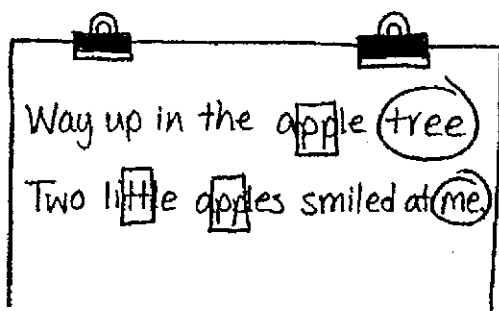 Way up in the apple tree
Two little apples smiled at me.